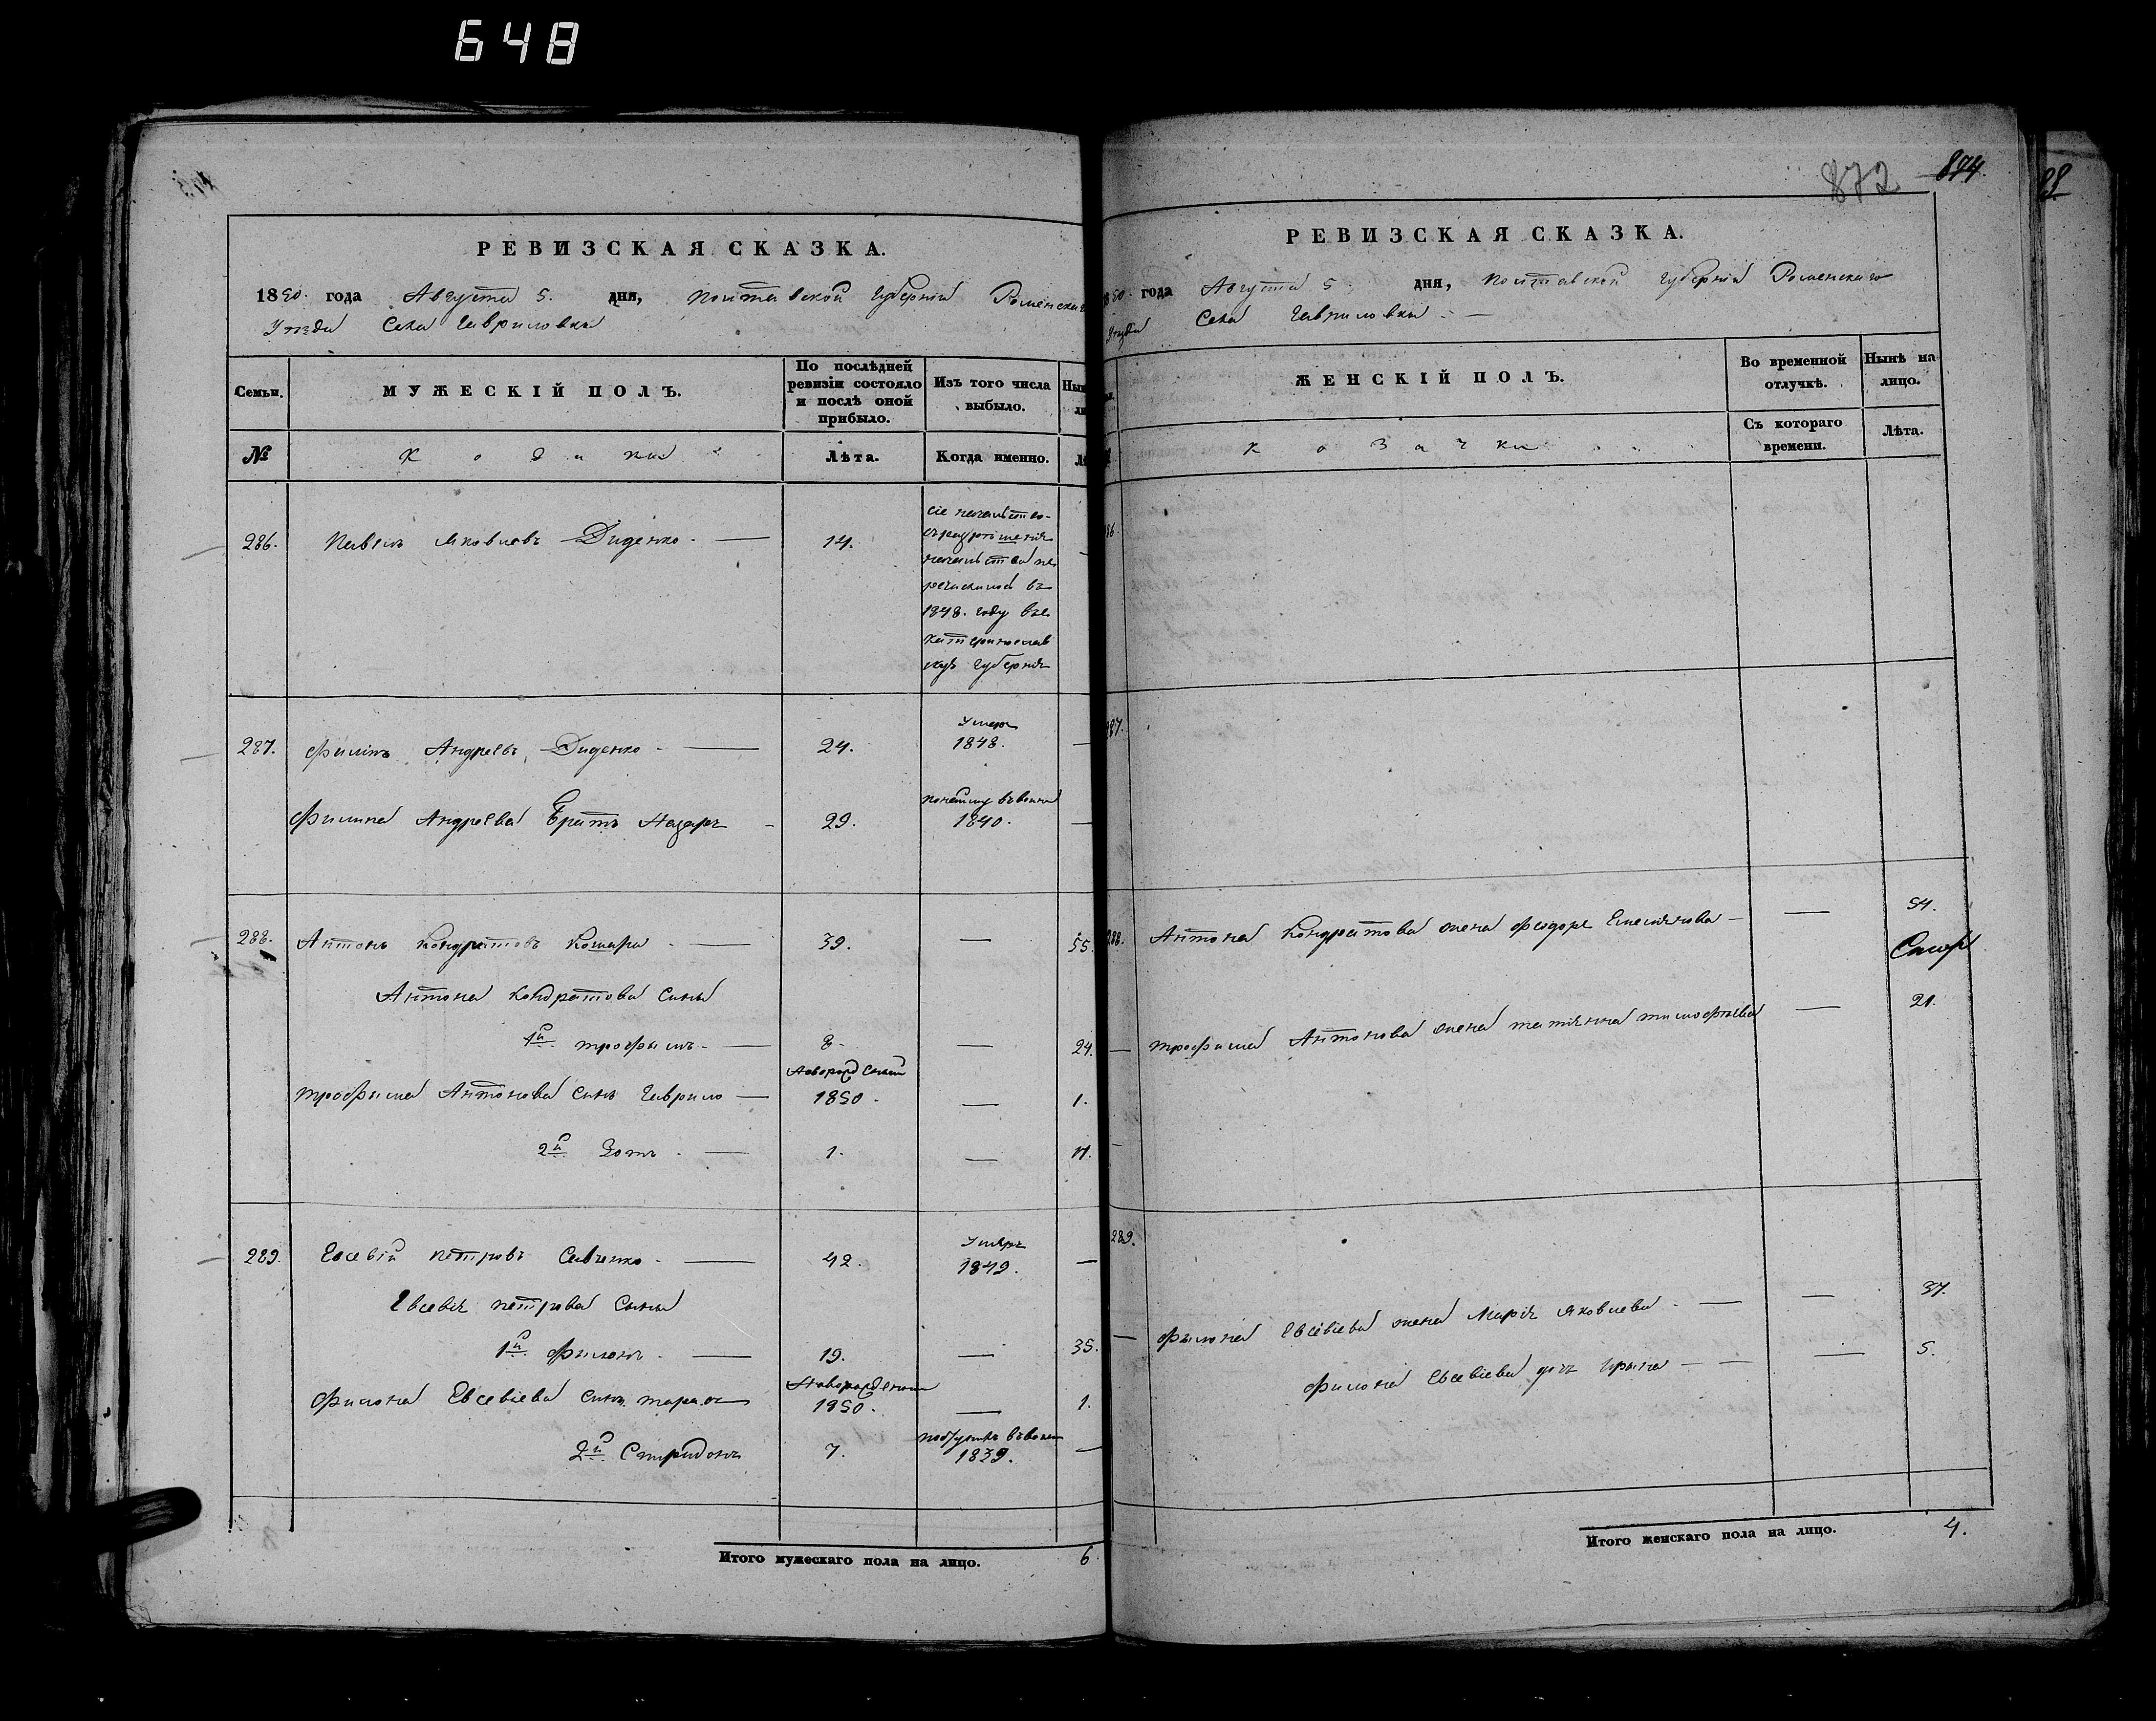 648
РЕВИЗСКАЯ СКАЗКА.
1850. года Августа 5. дня, Полтавской Губерніи Роменскаго
Уѣзда Села Гавриловки
Семьи.
МУЖЕСКІЙ ПОЛЪ.
По послѣдней ревизіи состояло и послѣ оной прибыло.
Изъ того числа выбыло.
№
Козаки
Лѣта.
Когда именно.
286. Павелъ Яковлевъ Диденко. — 14.
1848. году
Губернію
287. Филипъ Андреевъ Диденко — 24. Умеръ 1848. —
Филипа Андреева Братъ Назаръ — 29. 1840. —
288. Антонъ Кондратовъ Кошара — 39. — 55.
Антона Кондратова Сыны
1й Трофимъ — 8. — 24.
Трофима Антонова Сынъ Гаврило — Новорожденный 1850. — 1.
2й — 1. —
289. Евсевій Петровъ Савченко — 42. Умеръ 1849. —
Евсевія Петрова Сыны
1й Филонъ — 19. — 35.
Филона Евсевіева Сынъ Тарасъ Новорожденный 1850. — 1.
2й Спиридонъ 7. 1839. —
Итого мужескаго пола на лицо. 6
872 874
РЕВИЗСКАЯ СКАЗКА.
1850. года Августа 5 дня, Полтавской Губерніи Роменскаго
Уѣзда Села Гавриловки —
ЖЕНСКІЙ ПОЛЪ.
Во временной отлучкѣ.
Нынѣ на лицо.
Козачки
Съ котораго времени.
Лѣта.
286.
287.
288. Антона Кондратова жена Феодора Емельянова — — 54.
— Трофима Антонова жена Татіяна Тимофѣева — 21.
289.
— Филона Евсевіева жена Марія Яковлева — — 37.
Филона Евсевіева дочь Ирина — — — 5.
Итого женскаго пола на лицо. 4.